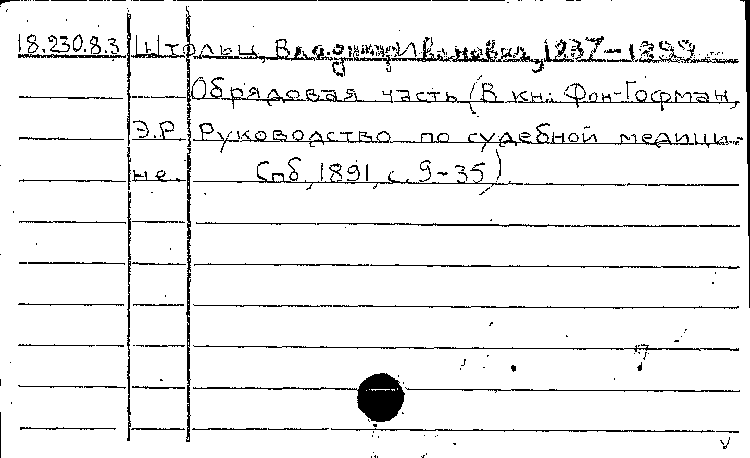 18.230.8.3 Штольц, Владимир Иванович, 1837-1899
Обрядовая часть (В кн.: Фон-Гофман,
Э.Р. Руководство по судебной медици-
не. Спб, 1891, с. 9-35)